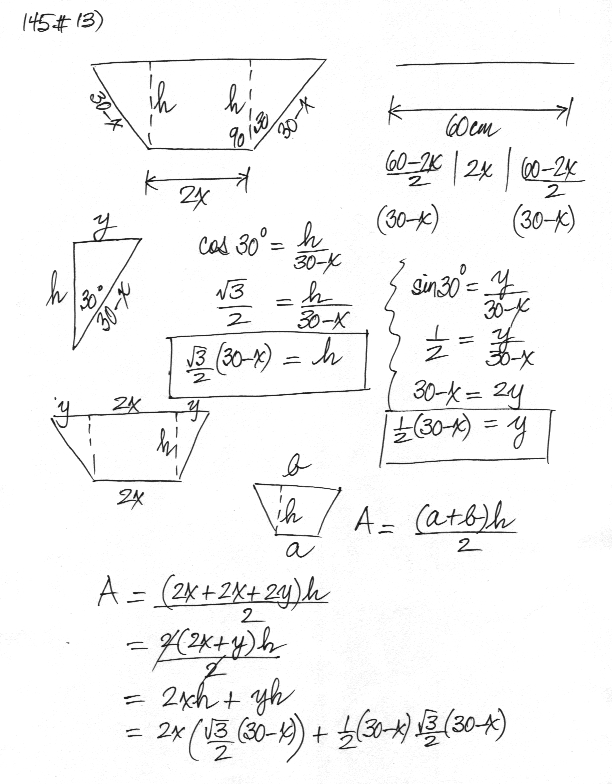 145# 13)
30-x h h 90 30 30-x
2x
60cm
60-2x/2 | 2x | 60-2x/2
(30-x) (30-x)
y
h 30° 30-x
cos 30° = h/30-x
√3/2 = h/30-x
√3/2 (30-x) = h
sin30° = y/30-x
1/2 = y/30-x
30-x = 2y
1/2(30-x) = y
y 2x y
h
2x
b
h
a
A = (a+b)h/2
A = (2x+2x+2y)h/2
= 2(2x+y)h/2
= 2xh + yh
= 2x(√3/2 (30-x)) + 1/2(30-x) √3/2 (30-x)